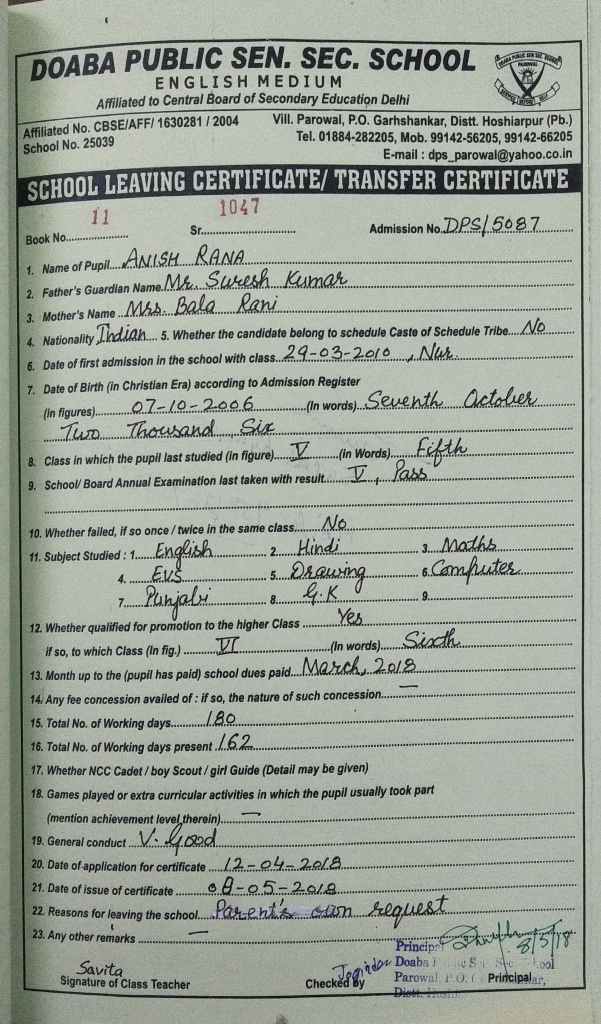 DOABA PUBLIC SEN. SEC. SCHOOL
ENGLISH MEDIUM
Affiliated to Central Board of Secondary Education Delhi
Affiliated No. CBSE/AFF/ 1630281 / 2004
School No. 25039
Vill. Parowal, P.O. Garhshankar, Distt. Hoshiarpur (Pb.)
Tel. 01884-282205, Mob. 99142-56205, 99142-66205
E-mail : dps_parowal@yahoo.co.in
SCHOOL LEAVING CERTIFICATE/ TRANSFER CERTIFICATE
Book No. 11 Sr. 1047 Admission No. DPS/5087
1. Name of Pupil ANISH RANA
2. Father's Guardian Name Mr. Suresh Kumar
3. Mother's Name Mrs. Bala Rani
4. Nationality Indian 5. Whether the candidate belong to schedule Caste of Schedule Tribe No
6. Date of first admission in the school with class 29-03-2010, Nur.
7. Date of Birth (in Christian Era) according to Admission Register
(in figures) 07-10-2006 (In words) Seventh October
Two Thousand Six
8. Class in which the pupil last studied (in figure) V (in Words) Fifth
9. School/ Board Annual Examination last taken with result V, Pass
10. Whether failed, if so once / twice in the same class No
11. Subject Studied : 1. English 2. Hindi 3. Maths
4. EVS 5. Drawing 6. Computer
7. Punjabi 8. G.K 9.
12. Whether qualified for promotion to the higher Class Yes
if so, to which Class (In fig.) VI (In words) Sixth
13. Month up to the (pupil has paid) school dues paid March, 2018
14. Any fee concession availed of : if so, the nature of such concession —
15. Total No. of Working days 180
16. Total No. of Working days present 162
17. Whether NCC Cadet / boy Scout / girl Guide (Detail may be given)
18. Games played or extra curricular activities in which the pupil usually took part
(mention achievement level therein) —
19. General conduct V. Good
20. Date of application for certificate 12-04-2018
21. Date of issue of certificate 08-05-2018
22. Reasons for leaving the school Parent's own request
23. Any other remarks —
Savita
Signature of Class Teacher
Joginder
Checked by
Principal 8/5/18
Doaba
Parowal, P.O. Principal
Distt.